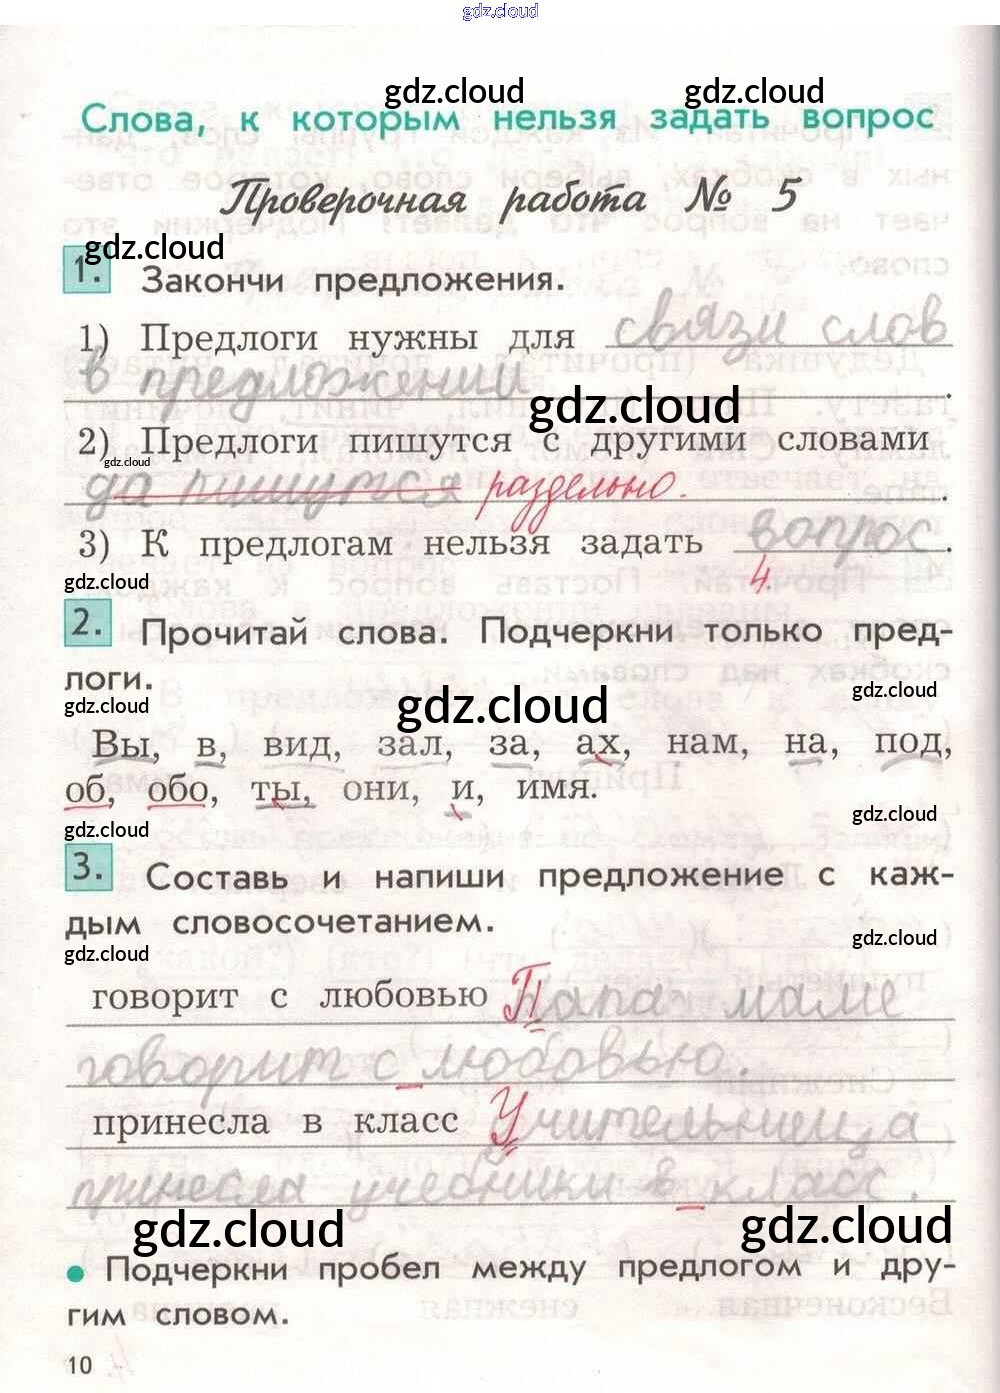 gdz.cloud
gdz.cloud gdz.cloud
Слова, к которым нельзя задать вопрос
Проверочная работа № 5
gdz.cloud
1. Закончи предложения.
1) Предлоги нужны для связи слов
в предложении.
gdz.cloud
2) Предлоги пишутся с другими словами
gdz.cloud
да пишутся раздельно.
3) К предлогам нельзя задать вопрос.
4.
gdz.cloud
2. Прочитай слова. Подчеркни только пред-
логи.
gdz.cloud gdz.cloud gdz.cloud
Вы, в, вид, зал, за, ах, нам, на, под,
об, обо, ты, они, и, имя.
gdz.cloud gdz.cloud
3. Составь и напиши предложение с каж-
дым словосочетанием.
gdz.cloud gdz.cloud
говорит с любовью Папа маме
говорит с любовью.
принесла в класс Учительница
принесла учебники в класс.
gdz.cloud gdz.cloud
● Подчеркни пробел между предлогом и дру-
гим словом.
10